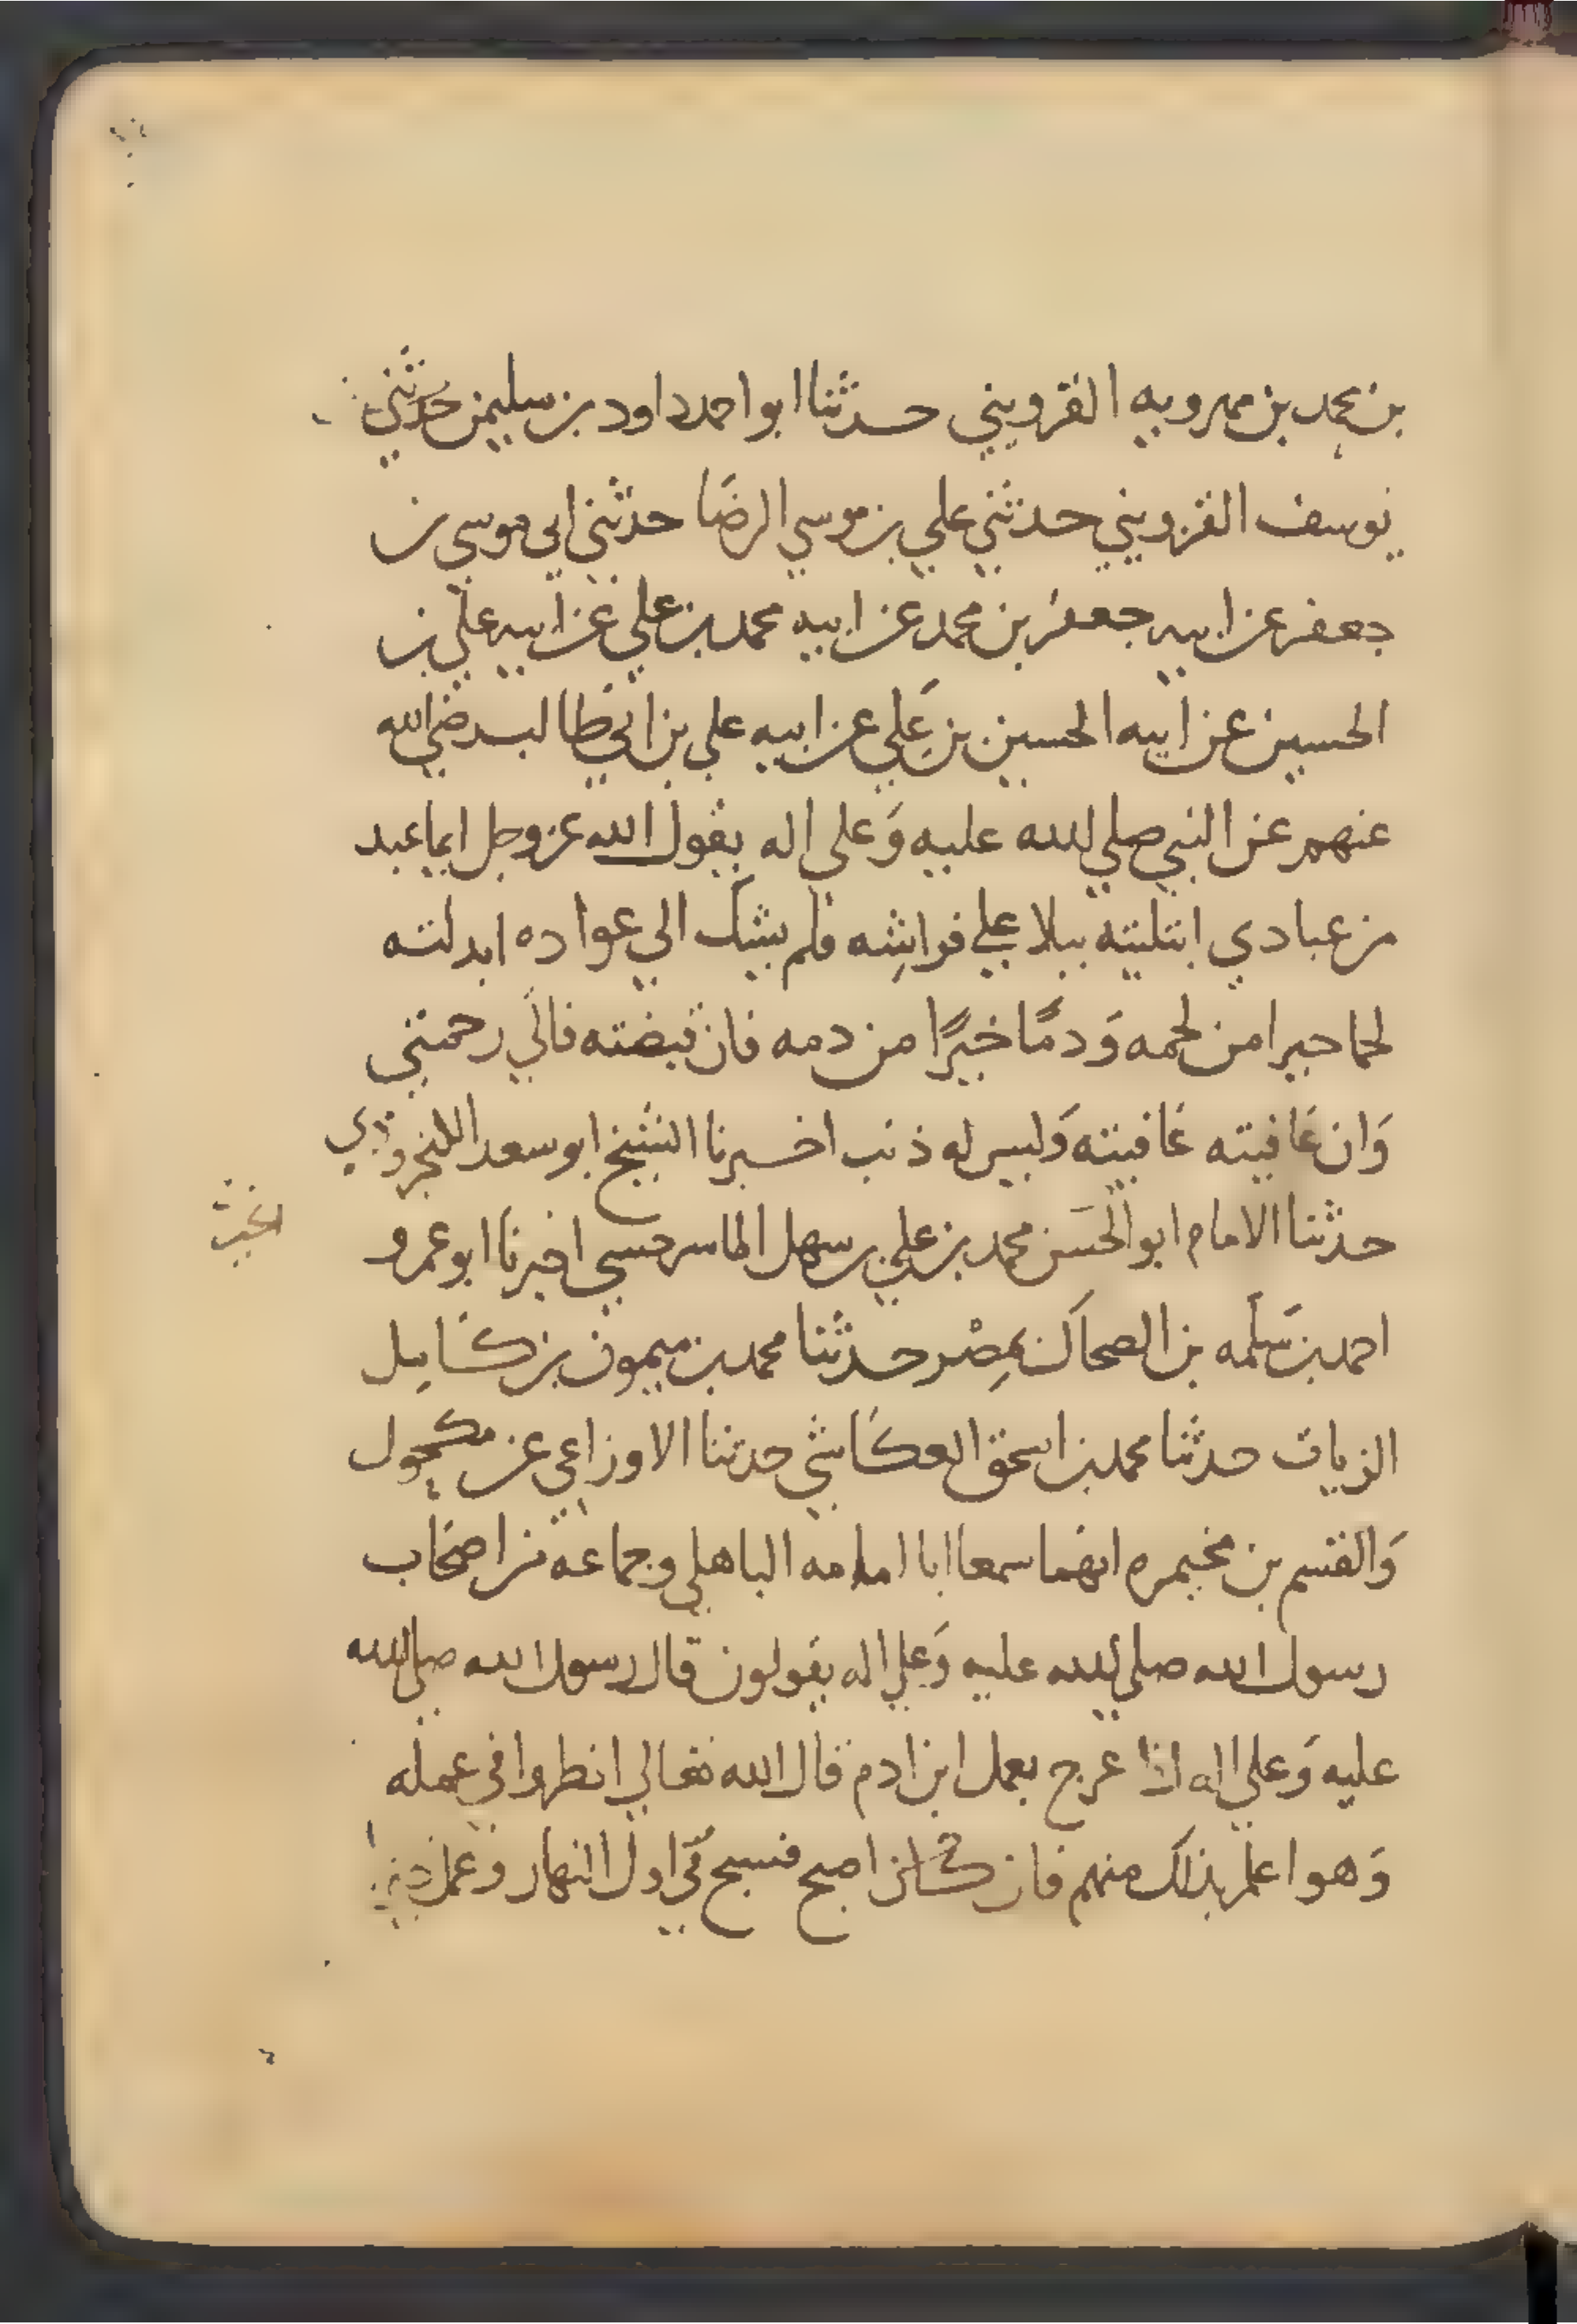 بن محمد بن مهرويه القزويني حدثنا ابو احمد داود بن سليمن حدثني
يوسف القزويني حدثني علي بن موسي الرضا حدثني ابي موسي بن
جعفر عن ابيه جعفر بن محمد عن ابيه محمد بن علي عن ابيه علي بن
الحسين عن ابيه الحسين بن علي عن ابيه علي بن ابي طالب رضي الله
عنهم عن النبي صلي الله عليه وعلي اله يقول الله عز وجل ايما عبد
من عبادي ابتليته ببلا علي فراشه فلم يشك الي عواده ابدلته
لحما خيرا من لحمه وَدمًا خيرًا من دمه فان قبضته فالي رحمتي
وَان عَافيته عَافيته وَليس له ذنب اخبرنا الشيخ ابو سعد
حدثنا الامام ابو الحسَن محمد بن علي بن سهل الماسرجسي اخبرنا ابو عمرو
احمد بن سَلَمه بن الضحاك بمِصْر حدثنا محمد بن ميمون بن كَامِل
الزيات حدثنا محمد بن اسحق العكاشي حدثنا الاوزاعي عن مكحول
وَالقسم بن مخيمره انهما سمعا ابا امامه الباهلي وجماعه من اصحَاب
رسول الله صلي الله عليه وَعلي اله يقولون قال رسول الله صلي الله
عليه وَعلي اله اذا عرج بعمل ابن ادم قال الله تعالي انظروا في عمله
وَهو اعلم بذلك منهم فان كان اصبح فسبح في اول النهار وعمل